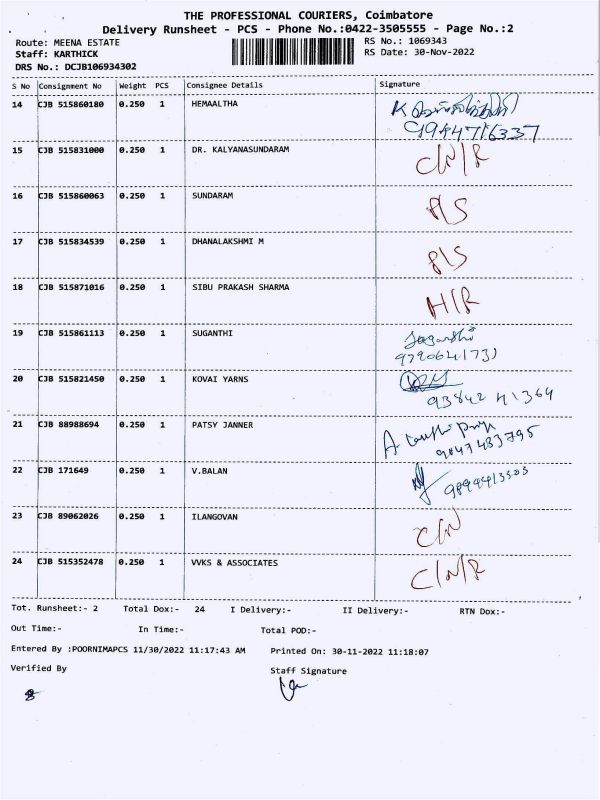 THE PROFESSIONAL COURIERS, Coimbatore
Delivery Runsheet - PCS - Phone No.:0422-3505555 - Page No.:2
Route: MEENA ESTATE RS No.: 1069343
Staff: KARTHICK RS Date: 30-Nov-2022
DRS No.: DCJB106934302
S No Consignment No Weight PCS Consignee Details Signature
14 CJB 515860180 0.250 1 HEMAALTHA
9944716337
15 CJB 515831000 0.250 1 DR. KALYANASUNDARAM C/N/R
16 CJB 515860063 0.250 1 SUNDARAM P/S
17 CJB 515834539 0.250 1 DHANALAKSHMI M P/S
18 CJB 515871016 0.250 1 SIBU PRAKASH SHARMA H/R
19 CJB 515861113 0.250 1 SUGANTHI
20 CJB 515821450 0.250 1 KOVAI YARNS
93842 41364
21 CJB 88988694 0.250 1 PATSY JANNER
22 CJB 171649 0.250 1 V.BALAN
23 CJB 89062026 0.250 1 ILANGOVAN C/N
24 CJB 515352478 0.250 1 VVKS & ASSOCIATES C/N/R
Tot. Runsheet:- 2 Total Dox:- 24 I Delivery:- II Delivery:- RTN Dox:-
Out Time:- In Time:- Total POD:-
Entered By :POORNIMAPCS 11/30/2022 11:17:43 AM Printed On: 30-11-2022 11:18:07
Verified By Staff Signature